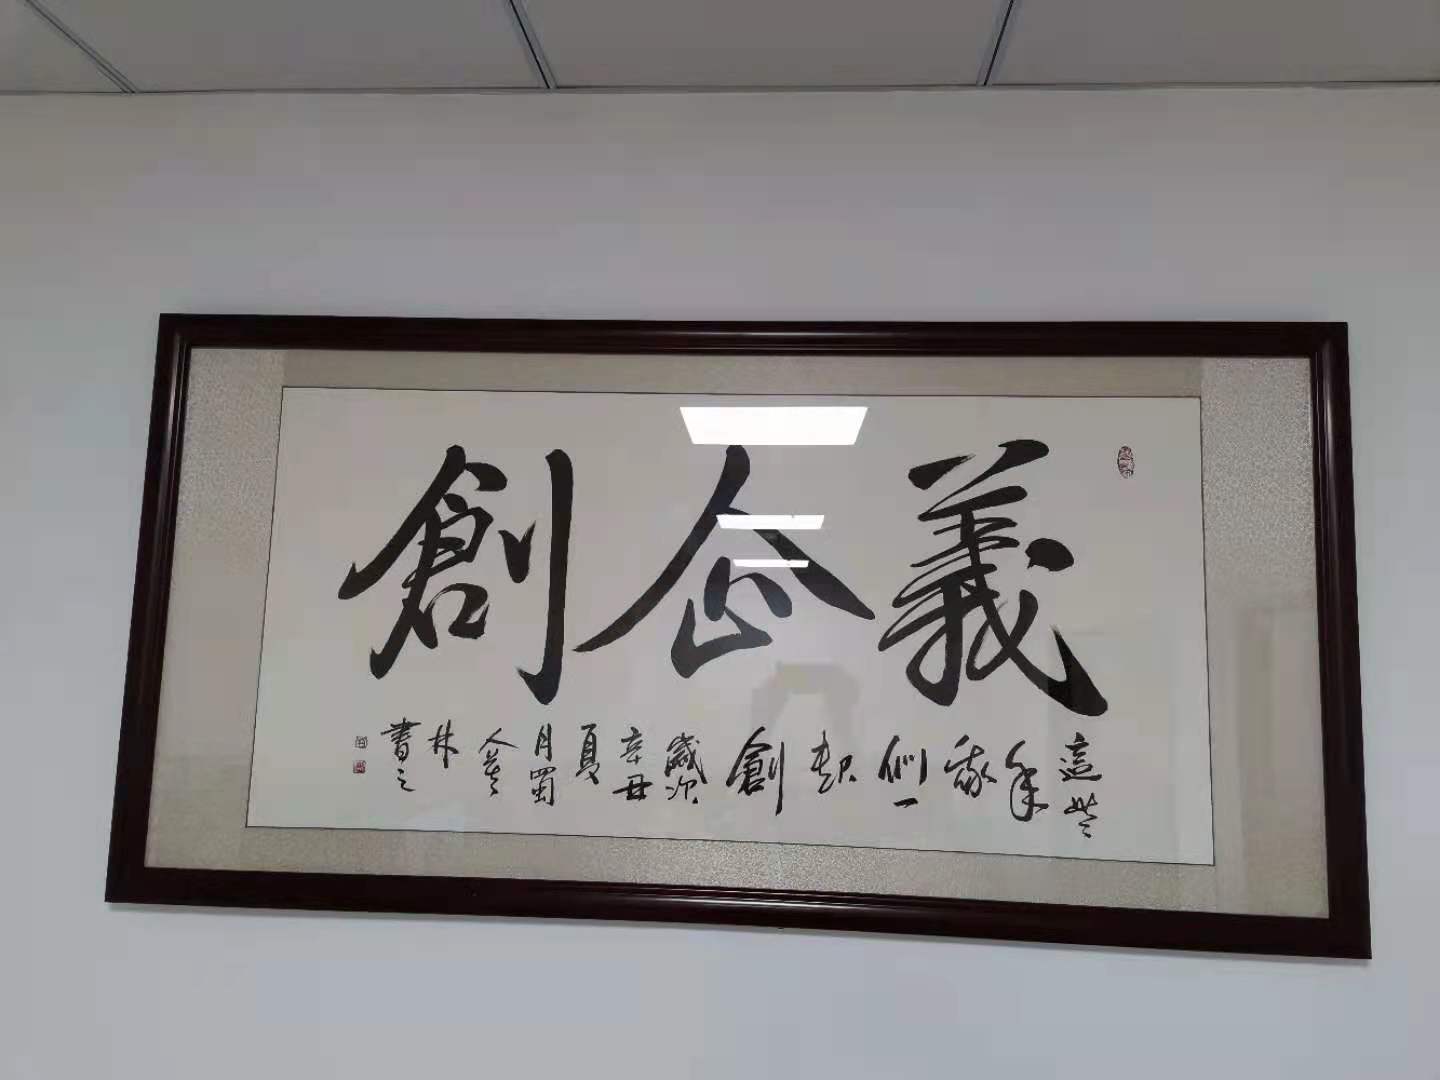 義企創
這些年我們一起創
歲次辛丑夏月蜀人黄林書之